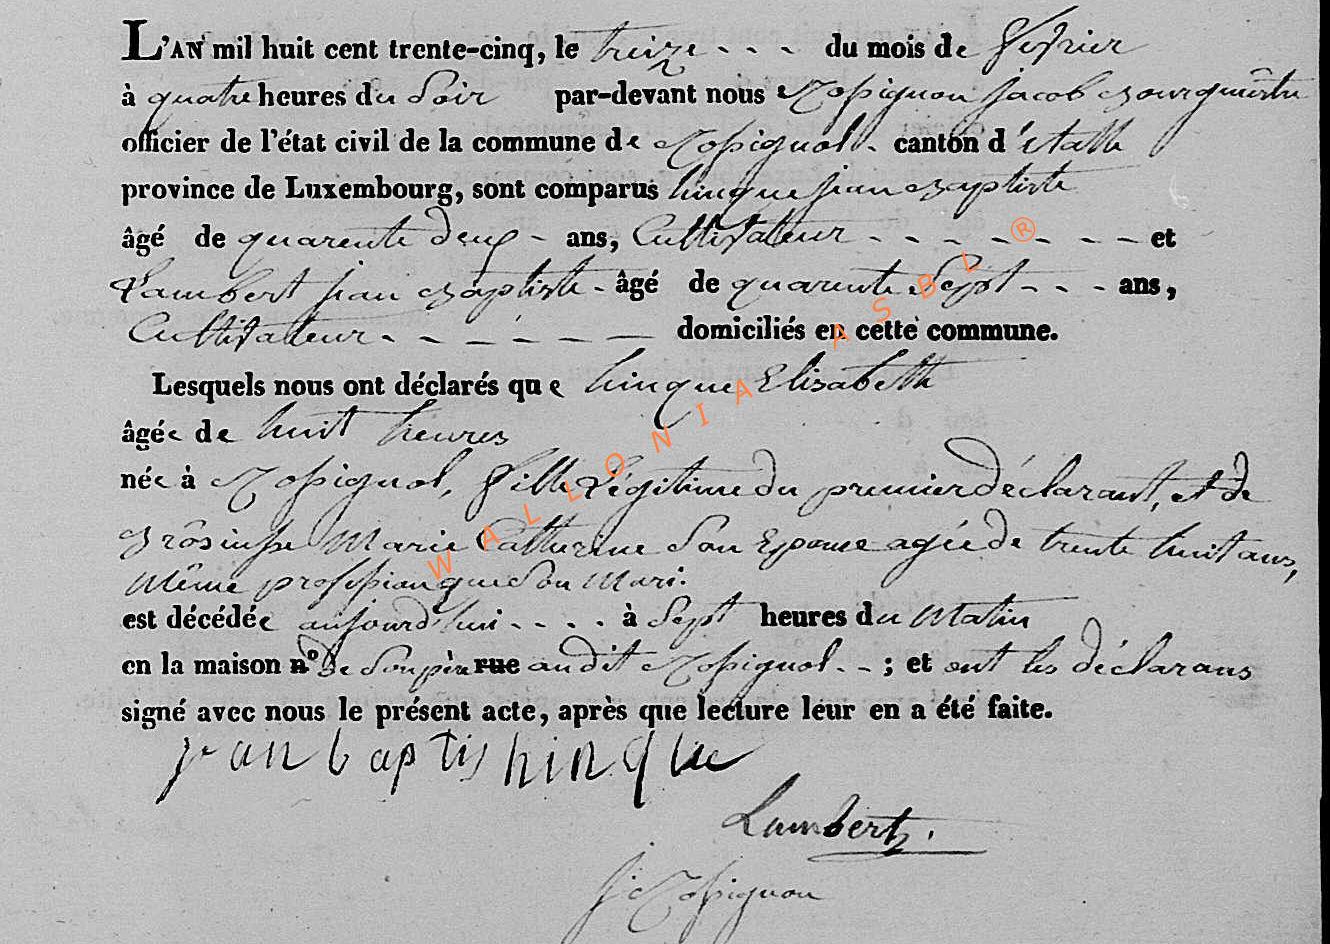 L'AN mil huit cent trente-cinq, le treize - - - du mois de fevrier
à quatre heures du Soir par-devant nous Rossignon jacob Bourguemêtre
officier de l'état civil de la commune de Rossignol - canton d'étalle
province de Luxembourg, sont comparus hinque jean Baptiste
âgé de quarente deux - ans, Cultivateur - - - - - - - et
Lambert jean Baptiste - âgé de quarente Sept - - - ans,
Cultivateur - - - - - - domiciliés en cette commune.
Lesquels nous ont déclarés que hinque Elisabeth
âgée de huit heures
née à Rossignol, fille Légitime du premier déclarant, et de
Marie Catherine Son Epouse agée de trente huit ans,
Même profession que Son Mari.
est décédée aujourd'hui - - - - à Sept heures du Matin
en la maison n° de Son père rue audit Rossignol - - ; et ont les déclarans
signé avec nous le présent acte, après que lecture leur en a été faite.
jean baptis hinque
Lambert.
j Rossignon
WALLONIA ASBL ®